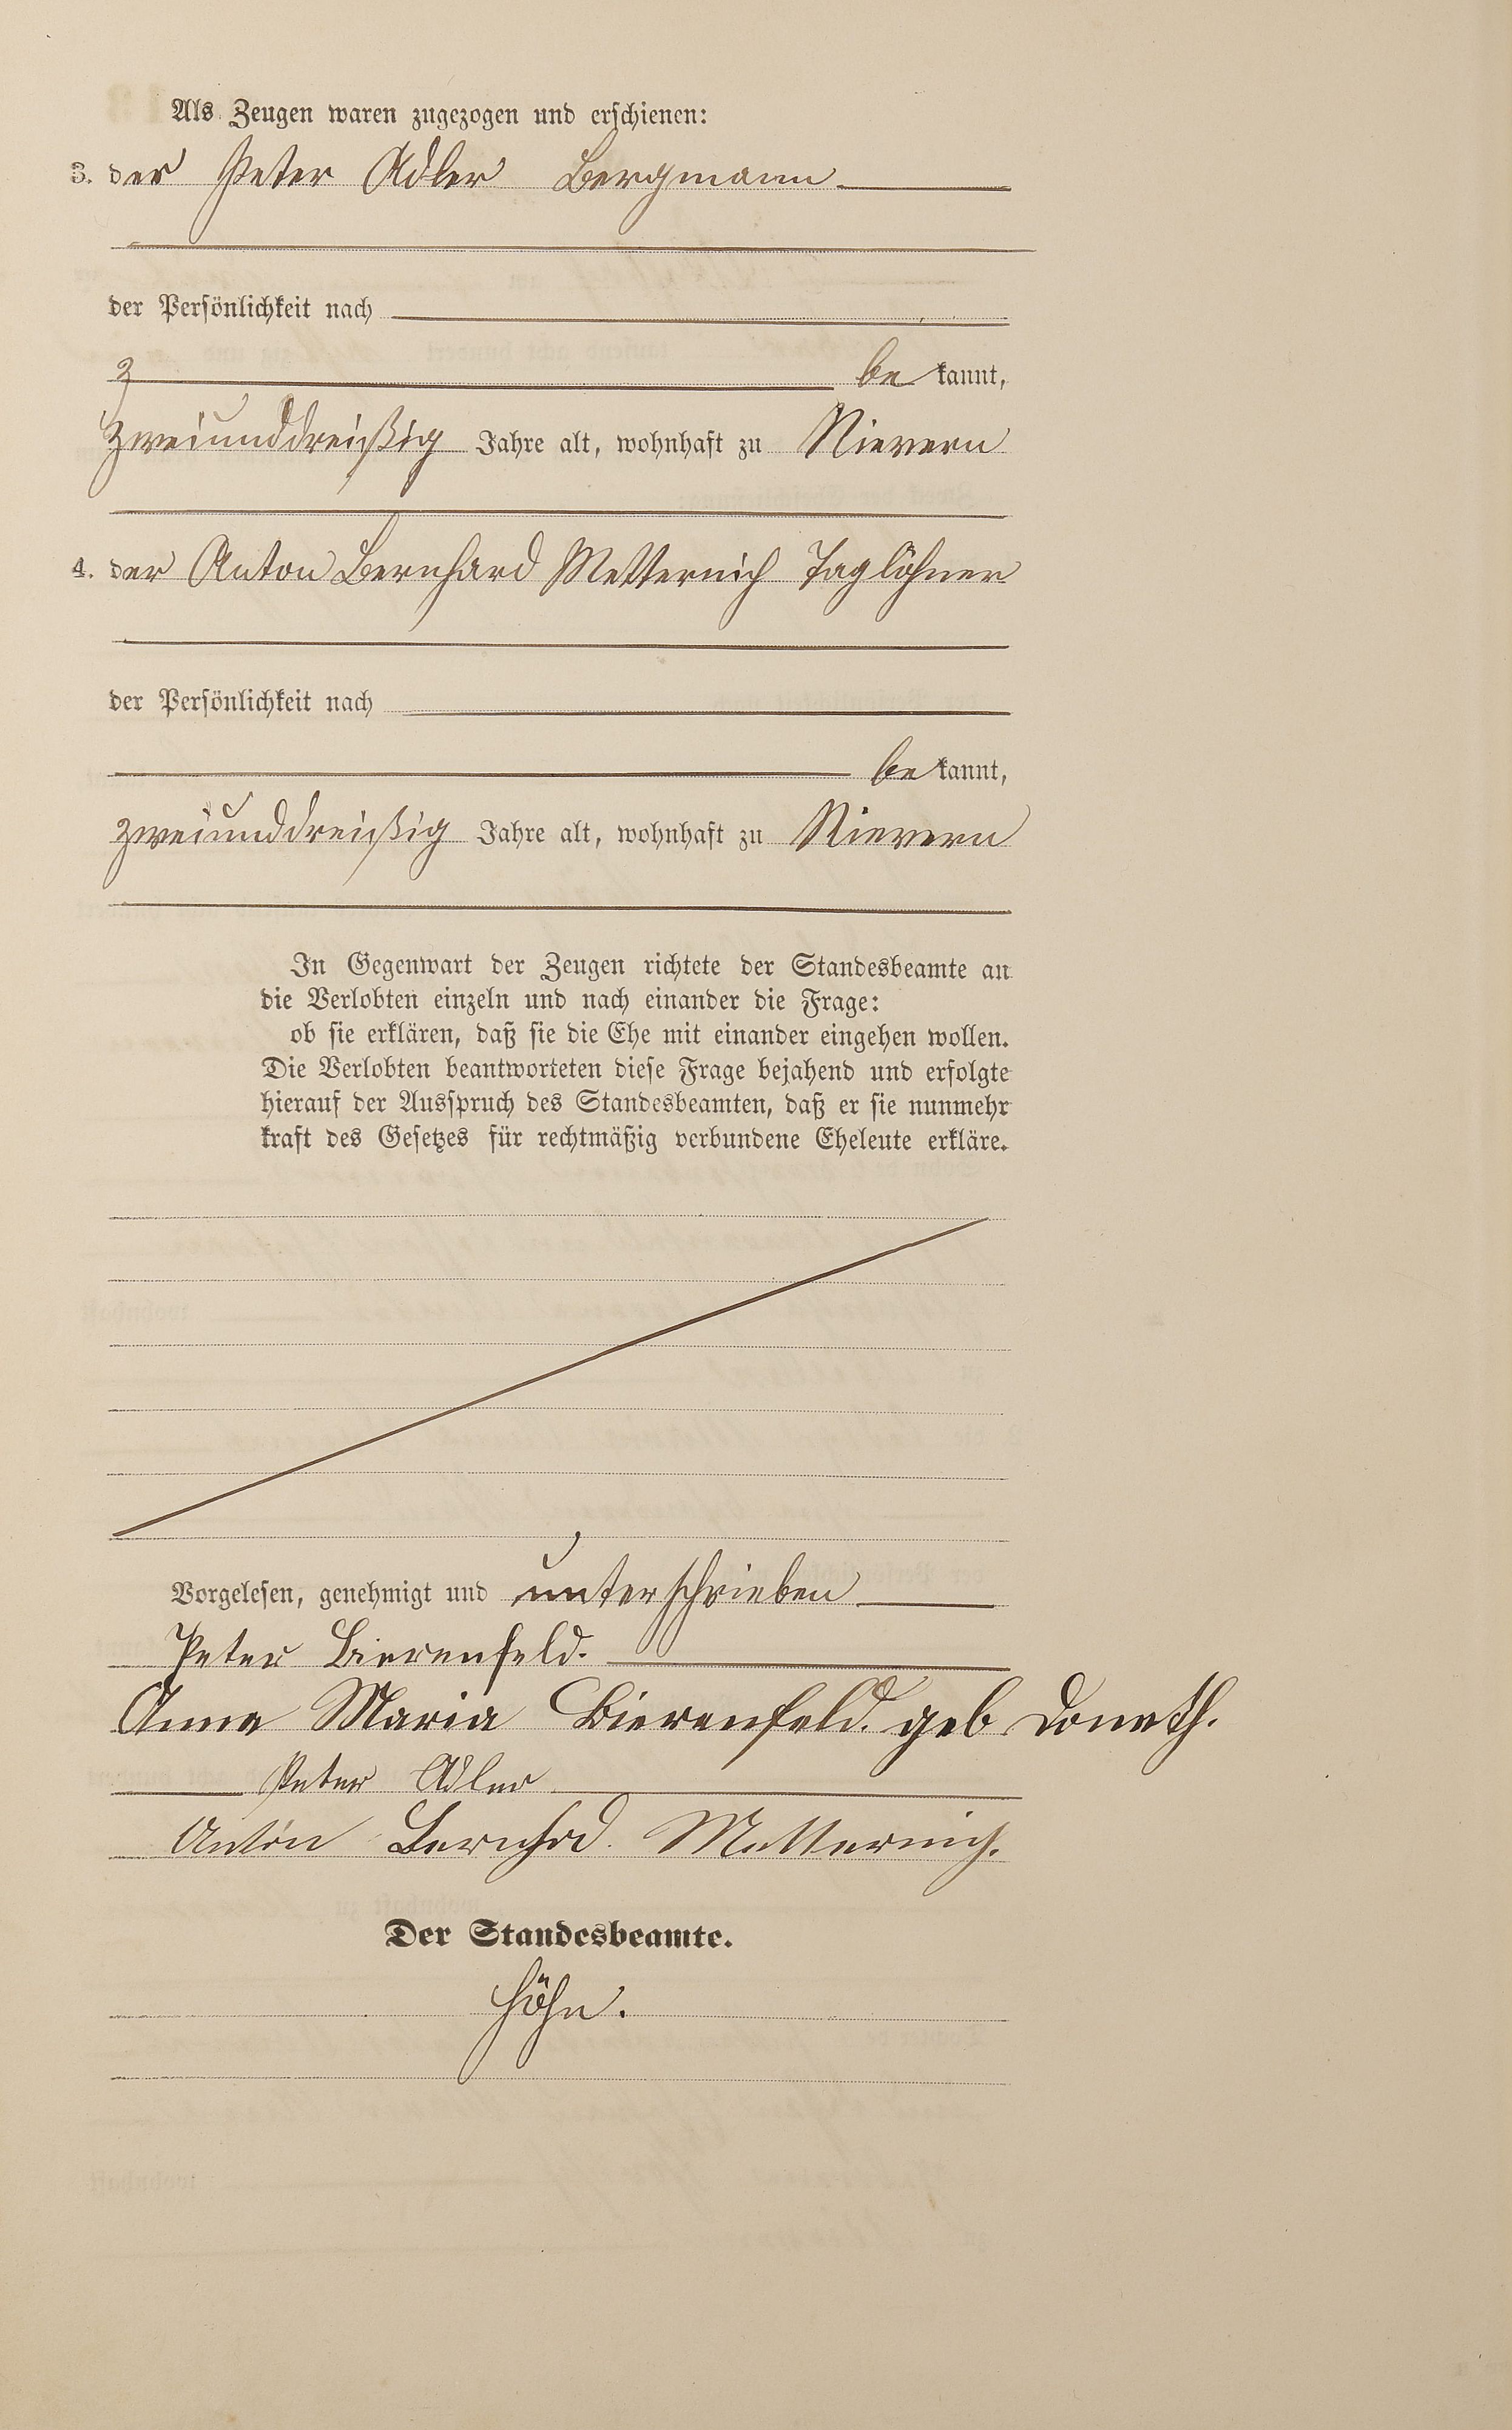 Als Zeugen waren zugezogen und erschienen:
3. der Peter Adler Bergmann
der Persönlichkeit nach
z be kannt,
zweiunddreißig Jahre alt, wohnhaft zu Nievern
4. der Anton Bernhard Metternich Taglöhner
der Persönlichkeit nach
be kannt,
zweiunddreißig Jahre alt, wohnhaft zu Nievern
In Gegenwart der Zeugen richtete der Standesbeamte an
die Verlobten einzeln und nach einander die Frage:
ob sie erklären, daß sie die Ehe mit einander eingehen wollen.
Die Verlobten beantworteten diese Frage bejahend und erfolgte
hierauf der Ausspruch des Standesbeamten, daß er sie nunmehr
kraft des Gesetzes für rechtmäßig verbundene Eheleute erkläre.
Vorgelesen, genehmigt und unterschrieben
Peter Bierenfeld.
Anna Maria Bierenfeld. geb Donath.
Peter Adler
Anton Bernhd. Metternich.
Der Standesbeamte.
Höhn.